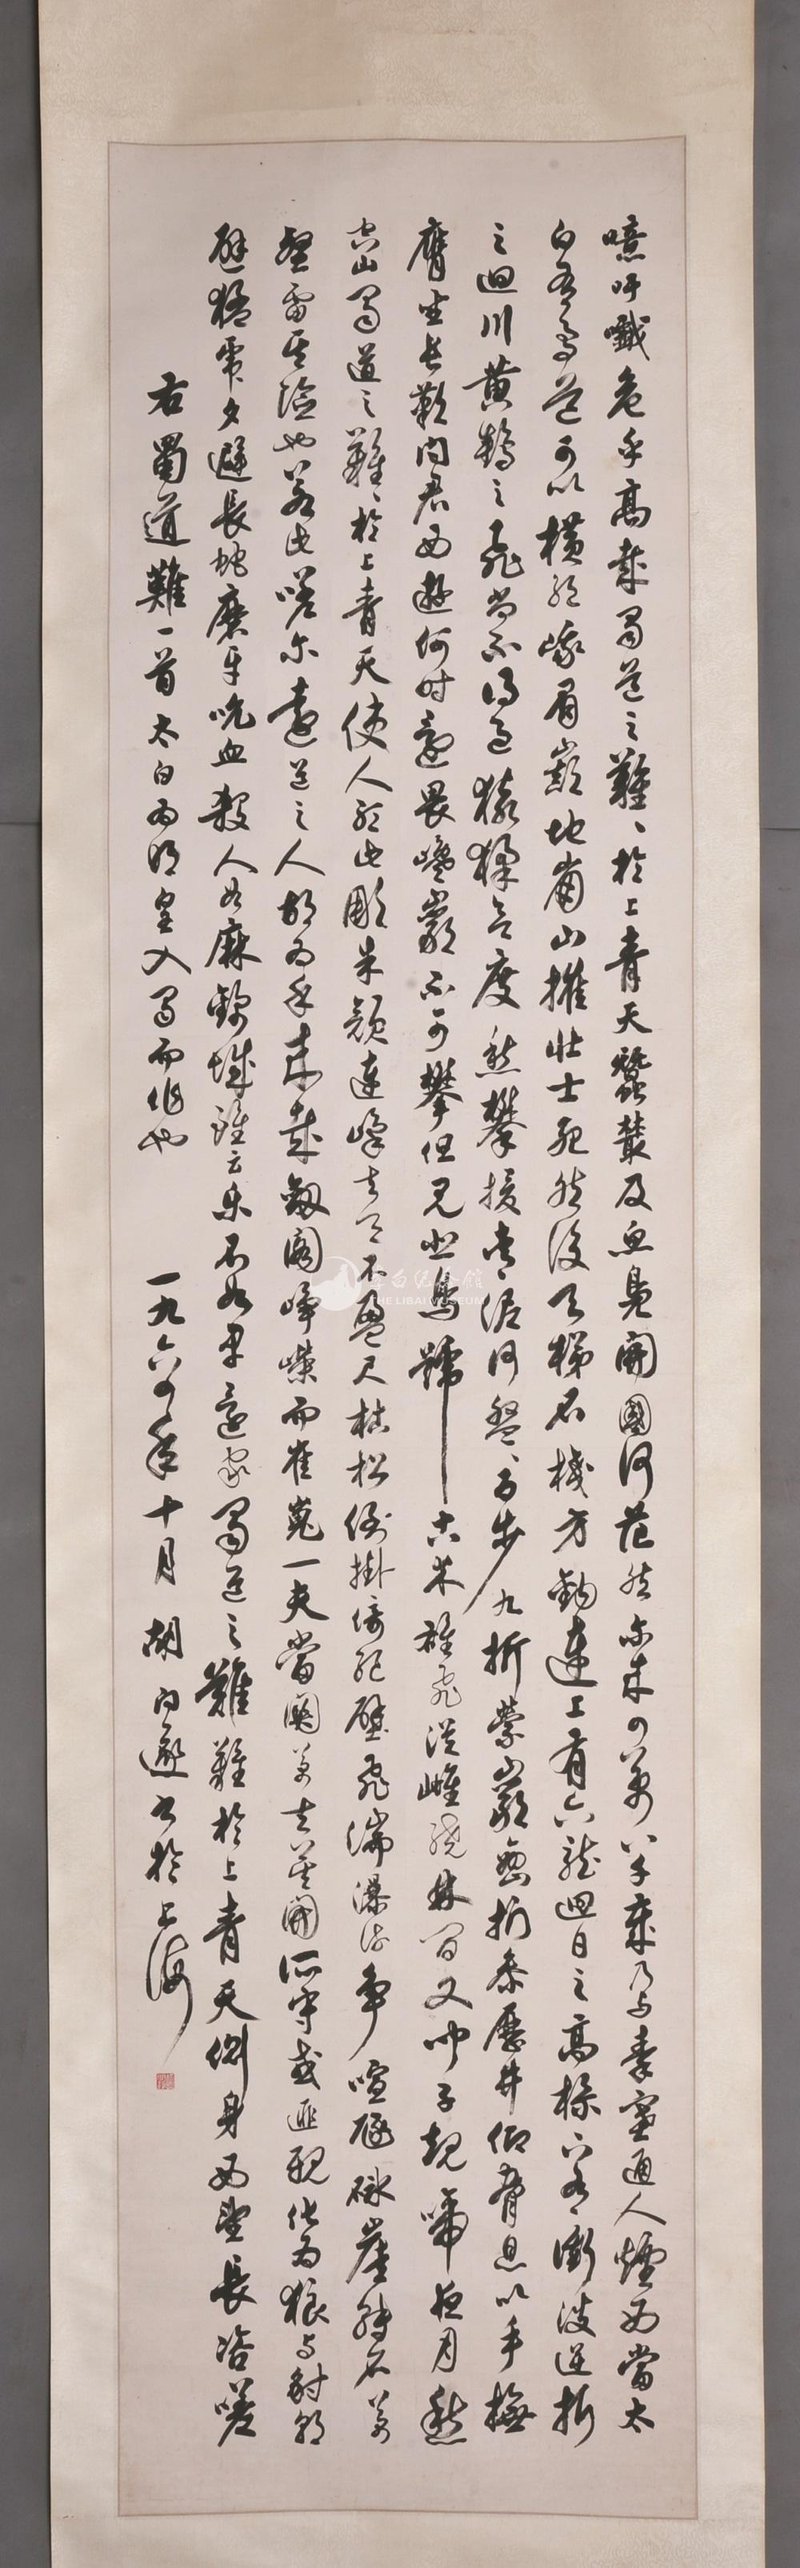 噫吁嚱危乎高哉蜀道之難、於上青天蠶叢及魚鳧開國何茫然尔来四萬八千歲乃与秦塞通人煙西當太
白有鳥道可以橫絕峨眉巔地崩山摧壯士死然後天梯石棧方鉤連上有六龍迴日之高標下有衝波逆折
之迴川黃鶴之飛尚不得過猿猱欲度愁攀援青泥何盤、百步九折縈巖巒捫參歷井仰脅息以手撫
膺坐長歎問君西遊何時還畏途巉巖不可攀但見悲鳥號古木雄飛從雌繞林間又聞子規啼夜月愁
空山蜀道之難、於上青天使人聽此凋朱顏連峰去天不盈尺枯松倒掛倚絕壁飛湍瀑流爭喧豗砯崖轉石萬
壑雷其險也若此嗟尔遠道之人胡為乎来哉劍閣崢嶸而崔嵬一夫當關萬夫莫開所守或匪親化為狼与豺朝
避猛虎夕避長蛇磨牙吮血殺人如麻錦城雖云樂不如早還家蜀道之難難於上青天側身西望長咨嗟
右蜀道難一首太白為明皇入蜀而作也
一九六四年十月胡问遂書於上海
李白纪念馆
THE LIBAI MUSEUM